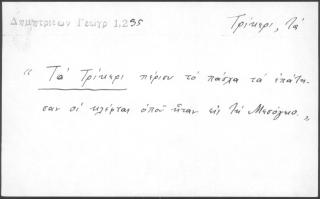 Δημητριεων Γεωγρ 1.235
Τρίκερι, τὰ
“ Τὰ Τρίκερι πέρισυ τὸ πάσχα τὰ ἐπάτη-
σαν οἱ κλέφται ὁποῦ ἦταν εἰς τὴ Μεσόγειο. „